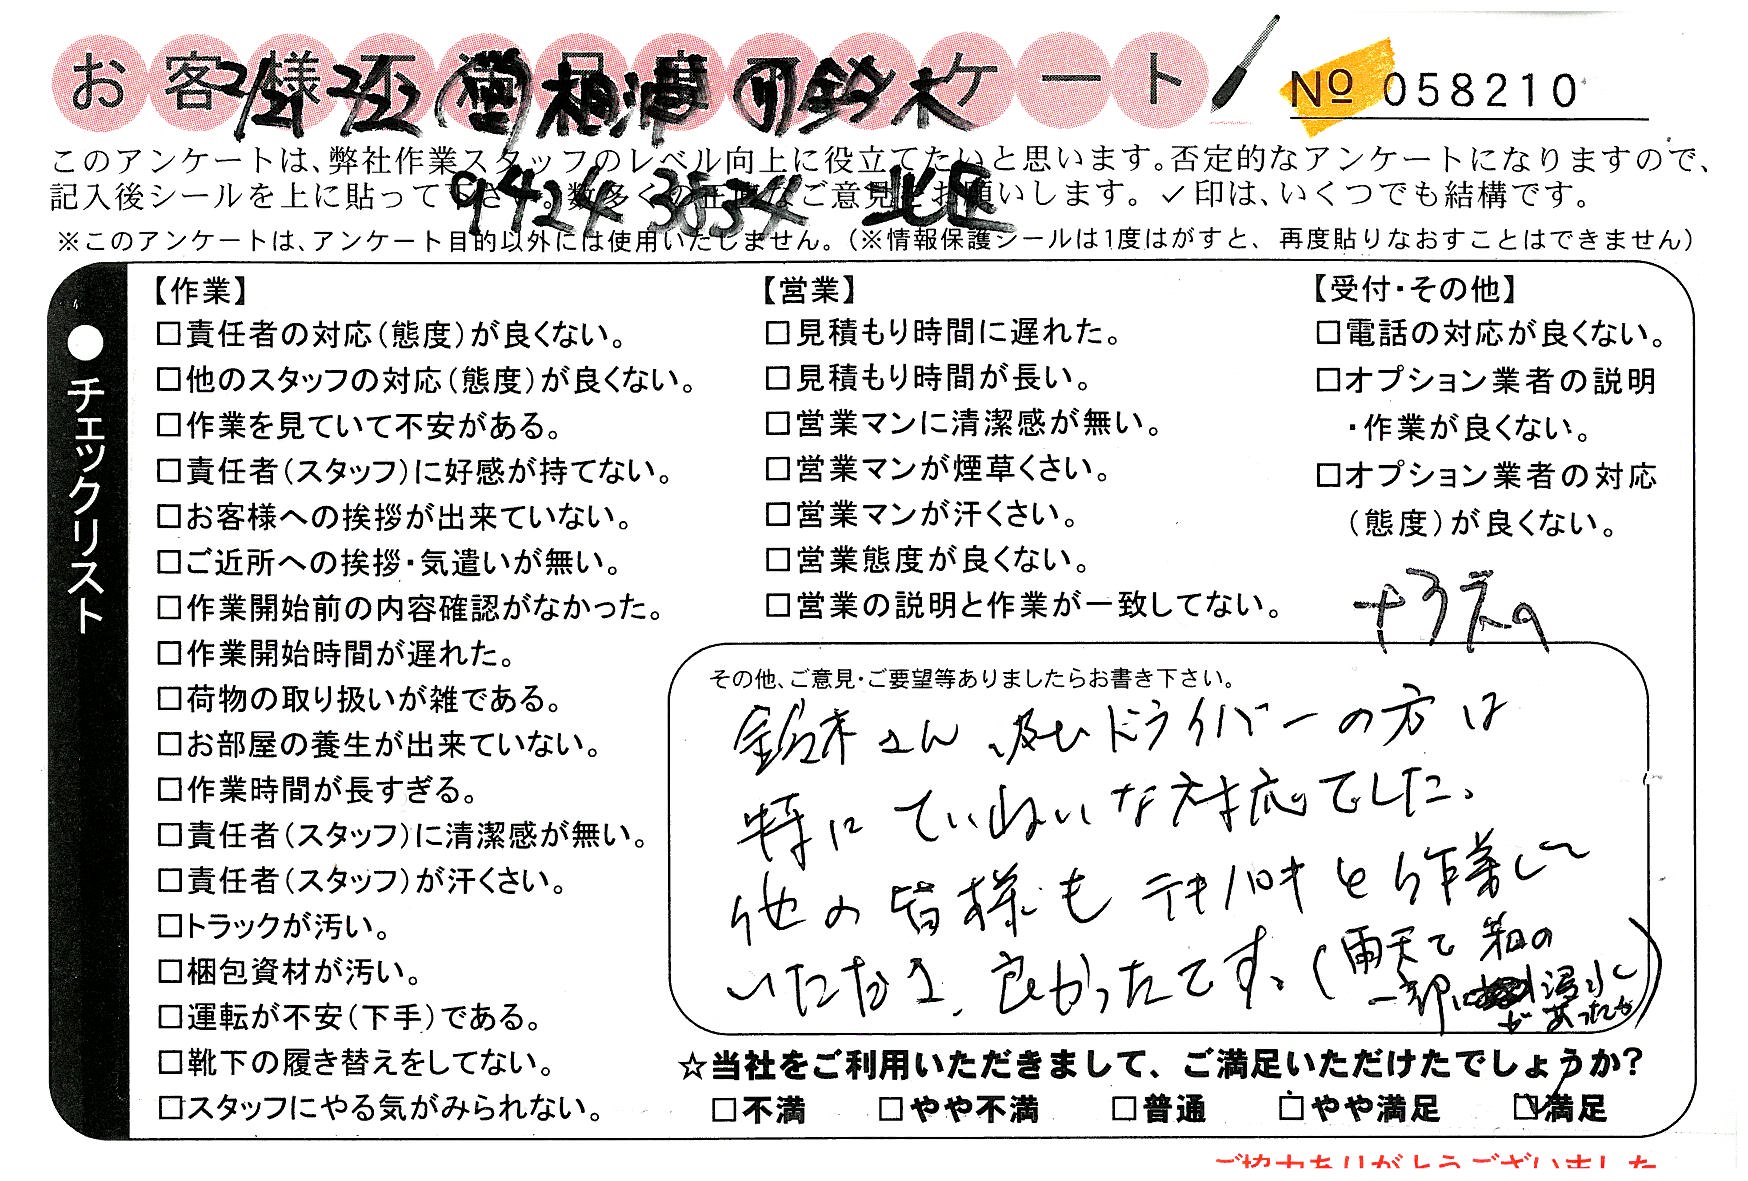 お客様不満足度アンケート
No 058210
2/21 2/22 (営)相津 (リ)鈴木
9424 3534 北区
このアンケートは、弊社作業スタッフのレベル向上に役立てたいと思います。否定的なアンケートになりますので、
記入後シールを上に貼って下さい。数多くの正直なご意見をお願いします。✓印は、いくつでも結構です。
※このアンケートは、アンケート目的以外には使用いたしません。(※情報保護シールは1度はがすと、再度貼りなおすことはできません)
●チェックリスト
【作業】
□責任者の対応(態度)が良くない。
□他のスタッフの対応(態度)が良くない。
□作業を見ていて不安がある。
□責任者(スタッフ)に好感が持てない。
□お客様への挨拶が出来ていない。
□ご近所への挨拶・気遣いが無い。
□作業開始前の内容確認がなかった。
□作業開始時間が遅れた。
□荷物の取り扱いが雑である。
□お部屋の養生が出来ていない。
□作業時間が長すぎる。
□責任者(スタッフ)に清潔感が無い。
□責任者(スタッフ)が汗くさい。
□トラックが汚い。
□梱包資材が汚い。
□運転が不安(下手)である。
□靴下の履き替えをしてない。
□スタッフにやる気がみられない。
【営業】
□見積もり時間に遅れた。
□見積もり時間が長い。
□営業マンに清潔感が無い。
□営業マンが煙草くさい。
□営業マンが汗くさい。
□営業態度が良くない。
□営業の説明と作業が一致してない。
【受付・その他】
□電話の対応が良くない。
□オプション業者の説明
・作業が良くない。
□オプション業者の対応
(態度)が良くない。
その他、ご意見・ご要望等ありましたらお書き下さい。
鈴木さん及びドライバーの方は
特にていねいな対応でした。
他の皆様もテキパキと作業して
いただき、良かったです。(雨天で箱の
一部に浸水
があったが)
☆当社をご利用いただきまして、ご満足いただけたでしょうか?
□不満 □やや不満 □普通 □やや満足 ☑満足
ご協力ありがとうございました